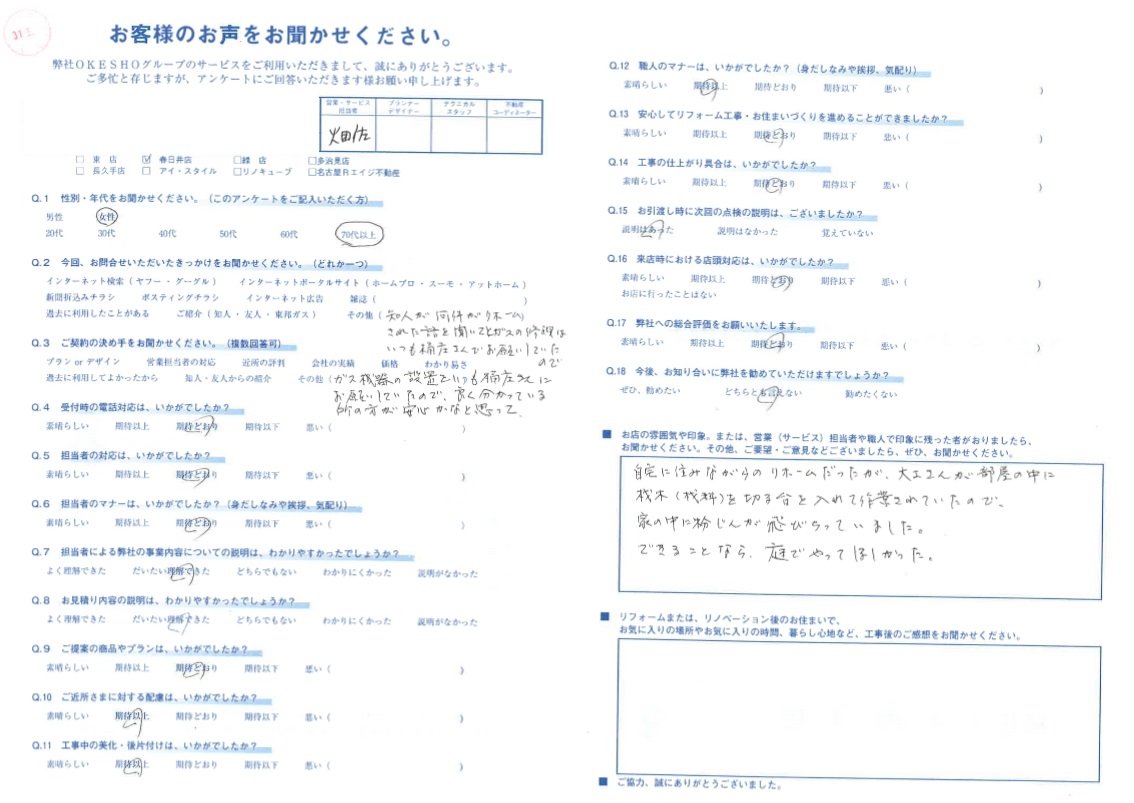 お客様のお声をお聞かせください。
弊社OKESHOグループのサービスをご利用いただきまして、誠にありがとうございます。
ご多忙と存じますが、アンケートにご回答いただきます様お願い申し上げます。
営業・サービス担当者 プランナーデザイナー テクニカルスタッフ 不動産コーディネーター
火田佐
□ 東 店 ☑ 春日井店 □緑 店 □多治見店
□ 長久手店 □ アイ・スタイル □リノキューブ □名古屋Rエイジ不動産
Q.1 性別・年代をお聞かせください。（このアンケートをご記入いただく方）
男性 女性
20代 30代 40代 50代 60代 70代以上
Q.2 今回、お問合せいただいたきっかけをお聞かせください。（どれか一つ）
インターネット検索（ヤフー・グーグル） インターネットポータルサイト（ホームプロ・スーモ・アットホーム）
新聞折込みチラシ ポスティングチラシ インターネット広告 雑誌（ ）
過去に利用したことがある ご紹介（知人・友人・東邦ガス） その他（知人が何件がリホーム
された話を聞いてとガスの修理は
いつも桶庄さんでお願いしていた
ので
Q.3 ご契約の決め手をお聞かせください。（複数回答可）
プラン or デザイン 営業担当者の対応 近所の評判 会社の実績 価格 わかり易さ
過去に利用してよかったから 知人・友人からの紹介 その他（ガス機器の設置をいつも桶庄さんに
お願いしていたので、良く分かっている
所の方が安心かなと思って。
Q.4 受付時の電話対応は、いかがでしたか？
素晴らしい 期待以上 期待どおり 期待以下 悪い（ ）
Q.5 担当者の対応は、いかがでしたか？
素晴らしい 期待以上 期待どおり 期待以下 悪い（ ）
Q.6 担当者のマナーは、いかがでしたか？（身だしなみや挨拶、気配り）
素晴らしい 期待以上 期待どおり 期待以下 悪い（ ）
Q.7 担当者による弊社の事業内容についての説明は、わかりやすかったでしょうか？
よく理解できた だいたい理解できた どちらでもない わかりにくかった 説明がなかった
Q.8 お見積り内容の説明は、わかりやすかったでしょうか？
よく理解できた だいたい理解できた どちらでもない わかりにくかった 説明がなかった
Q.9 ご提案の商品やプランは、いかがでしたか？
素晴らしい 期待以上 期待どおり 期待以下 悪い（ ）
Q.10 ご近所さまに対する配慮は、いかがでしたか？
素晴らしい 期待以上 期待どおり 期待以下 悪い（ ）
Q.11 工事中の美化・後片付けは、いかがでしたか？
素晴らしい 期待以上 期待どおり 期待以下 悪い（ ）
Q.12 職人のマナーは、いかがでしたか？（身だしなみや挨拶、気配り）
素晴らしい 期待以上 期待どおり 期待以下 悪い（ ）
Q.13 安心してリフォーム工事・お住まいづくりを進めることができましたか？
素晴らしい 期待以上 期待どおり 期待以下 悪い（ ）
Q.14 工事の仕上がり具合は、いかがでしたか？
素晴らしい 期待以上 期待どおり 期待以下 悪い（ ）
Q.15 お引渡し時に次回の点検の説明は、ございましたか？
説明はあった 説明はなかった 覚えていない
Q.16 来店時における店頭対応は、いかがでしたか？
素晴らしい 期待以上 期待どおり 期待以下 悪い（ ）
お店に行ったことはない
Q.17 弊社への総合評価をお願いいたします。
素晴らしい 期待以上 期待どおり 期待以下 悪い（ ）
Q.18 今後、お知り合いに弊社を勧めていただけますでしょうか？
ぜひ、勧めたい どちらとも言えない 勧めたくない
■ お店の雰囲気や印象。または、営業（サービス）担当者や職人で印象に残った者がおりましたら、
お聞かせください。その他、ご要望・ご意見などございましたら、ぜひ、お聞かせください。
自宅に住みながらのリホームだったが、大工さんが部屋の中に
材木（材料）を切る台を入れて作業されていたので、
家の中に粉じんが飛びちっていました。
できることなら、庭でやってほしかった。
■ リフォームまたは、リノベーション後のお住まいで、
お気に入りの場所やお気に入りの時間、暮らし心地など、工事後のご感想をお聞かせください。
■ ご協力、誠にありがとうございました。